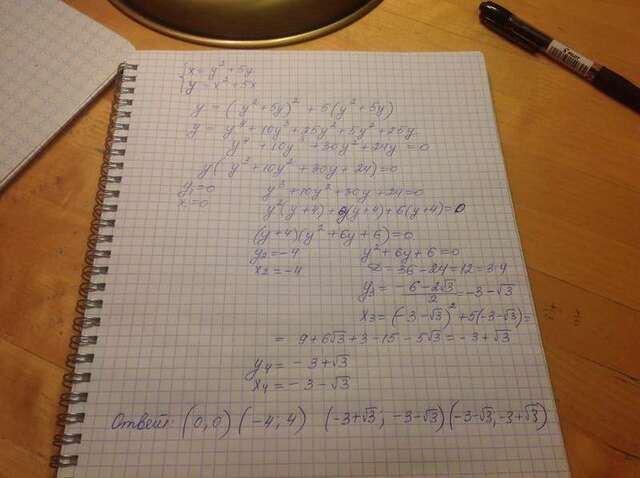 {x = y² + 5y
{y = x² + 5x
y = (y² + 5y)² + 5(y² + 5y)
y = y⁴ + 10y³ + 25y² + 5y² + 25y
y⁴ + 10y³ + 30y² + 24y = 0
y(y³ + 10y² + 30y + 24) = 0
y₁ = 0 y³ + 10y² + 30y + 24 = 0
x = 0 y²(y+4) + 6y(y+4) + 6(y+4) = 0
(y+4)(y² + 6y + 6) = 0
y₂ = -4 y² + 6y + 6 = 0
x₂ = -4 D = 36 - 24 = 12 = 3·4
y₃ = (-6 - 2√3)/2 = -3 - √3
x₃ = (-3 - √3)² + 5(-3 - √3) =
= 9 + 6√3 + 3 - 15 - 5√3 = -3 + √3
y₄ = -3 + √3
x₄ = -3 - √3
Ответ: (0,0) (-4; 4) (-3+√3; -3-√3) (-3-√3, -3+√3)